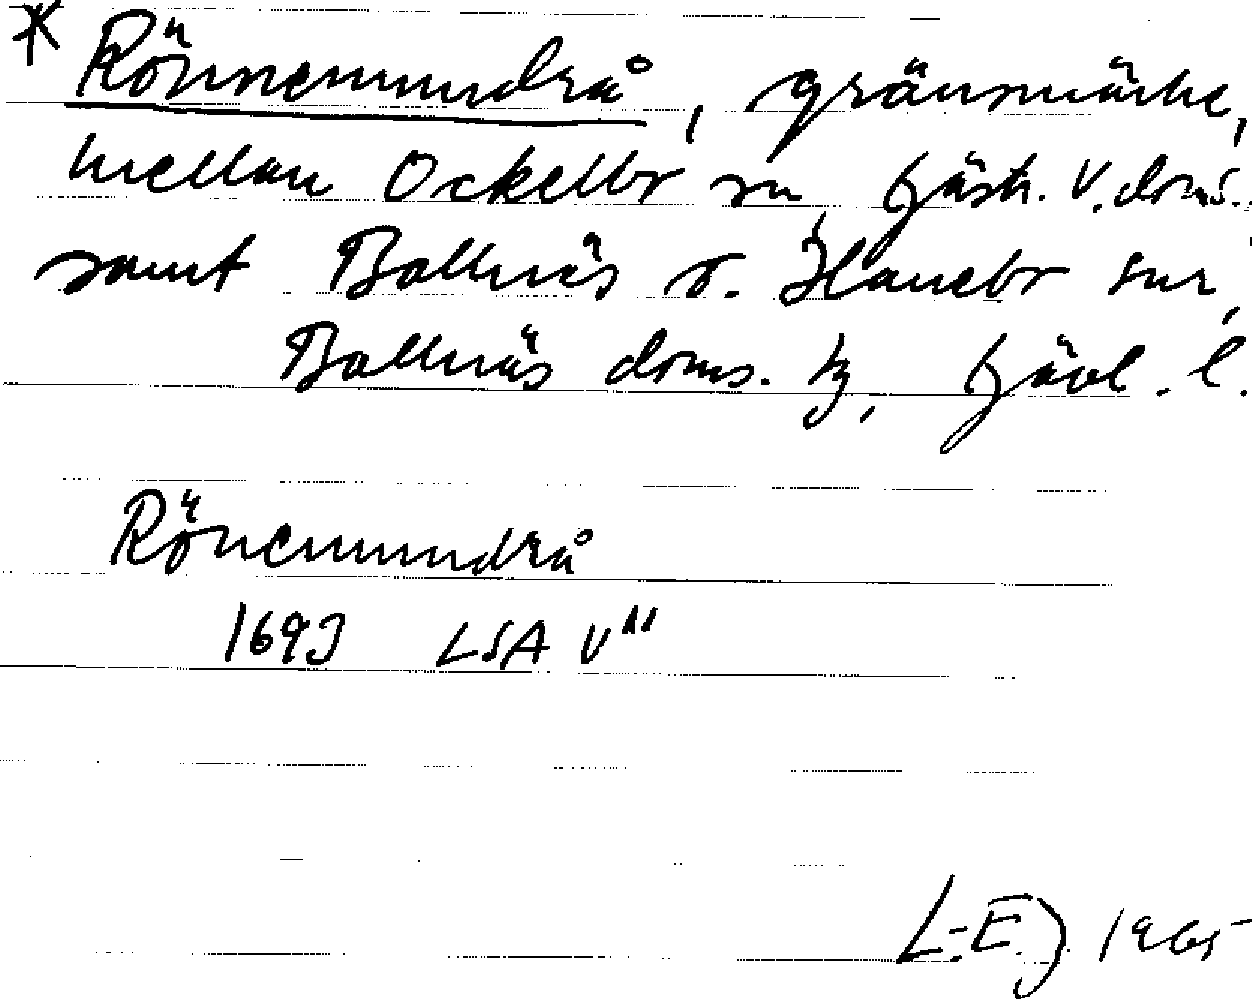 * Rönnemundrå, gränsmärke,
mellan Ockelbo sn, Gästr. V. doms.
samt Bollnäs o. Hanebo snr,
Bollnäs doms. tg, Gävl. l.
Rönemundrå
1693 LSA V"
L-EJ 1965